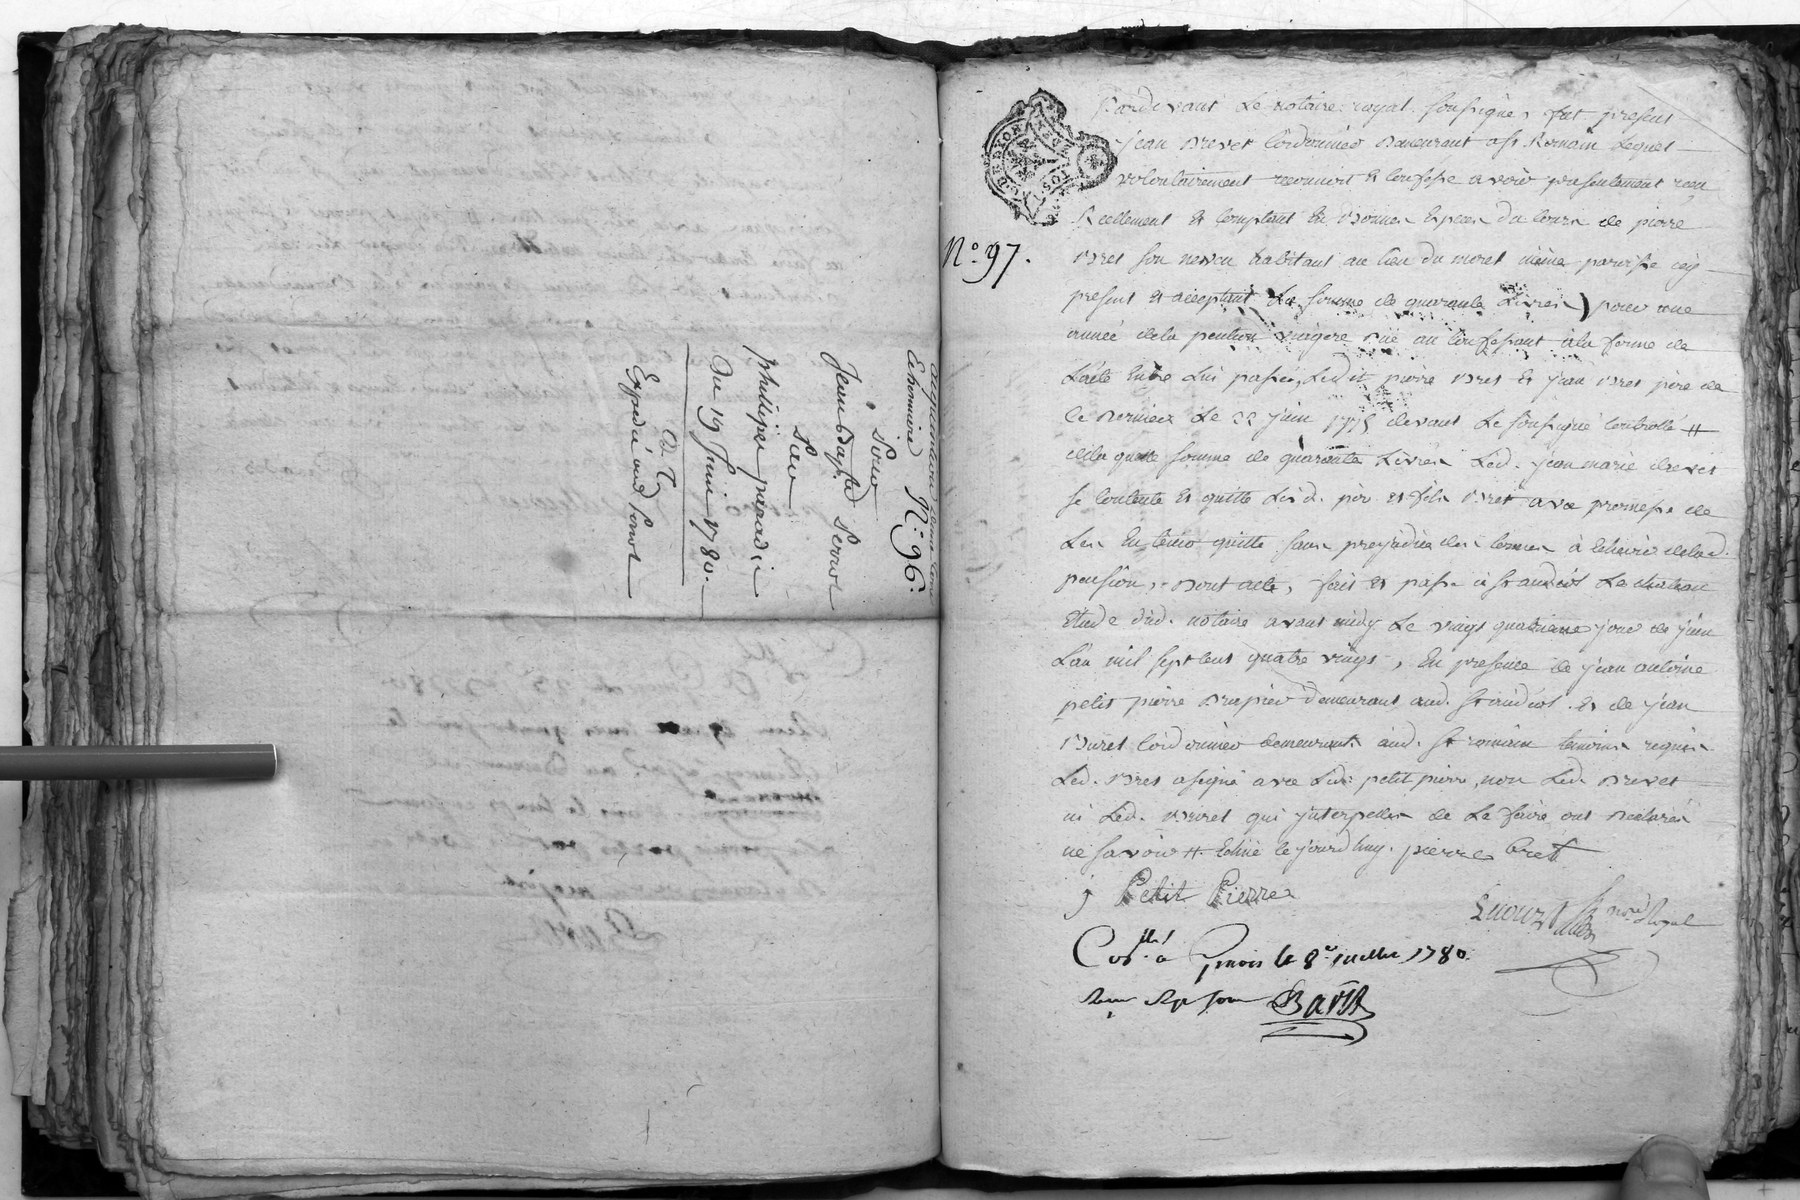 acquisition dune terre
Echonnaire N° 96.
Pour
Jean Baptiste Serve
Sur
Philippe paradi
Du 19 Juin 1780.
Expedié aud Serve
N° 97.
Pardevant Le notaire royal soussigné, fut present
jean Drevet Cordonnier demeurant a St. Romain Lequel
volontairement reconnoit et confesse avoir presentement reçu
Reellement et Comptant En Bonnes Especes du Cours de pierre
Bret son neveu habitant au lieu du moret même paroisse icy
present et acceptant La somme de quarante Livres pour une
année de la pension viagere due au Confessant a la forme de
Lacte Entre Lui passé, Ledit pierre Bret et jean Bret père de
Ce dernier Le 22 juin 1775 devant Le soussigné Controllé #
de la quelle somme de quarante Livres Led. jean marie Drevet
se Contente et quitte Lesd. père et fils Bret avec promesse de
Les En tenir quitte sans prejudice des termes à Echeoir de lad.
pension, Dont acte, fait et passé à St andéol Le chateau
Etude dud. notaire avant midy Le vingt quatrieme jour de juin
L'an mil sept cent quatre vingt, En presence de jean antoine
petit pierre Drapier demeurant aud. St andéol. et de jean
Buret Cordonnier demeurant aud. St romain temoins requis
Led. Bret a signé avec Led. petit pierre, non Led. Drevet
ni Led. Buret qui jnterpellés de Le faire ont Declaré
ne savoir #. Echue le jourdhuy. pierre Bret
j Petit Pierre
nore Royal
Conllé a Givors le 8e juillet 1780.
Reçu